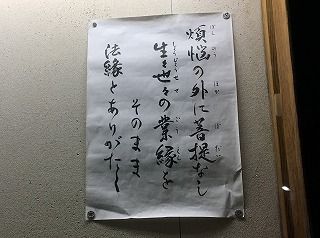 煩悩の外に菩提なし
生々世々の業縁を
そのまま
法縁とありがたく